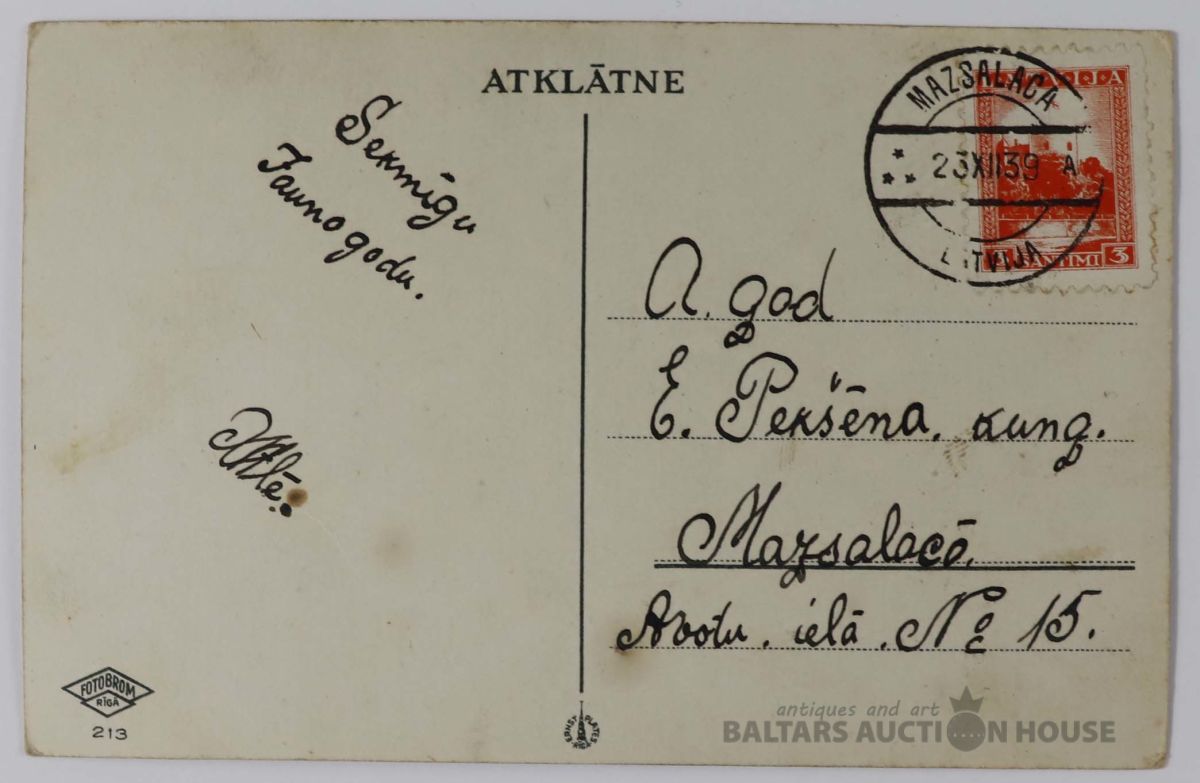 ATKLĀTNE
Sekmīgu
Jauno godu.
MAZSALACA
23XII39 A
LATVIJA
SANTIMI 3
A. god
E. Pekšēna. kung.
Mazsalacā.
Avotu. ielā. № 15.
FOTOBROM
RĪGĀ
213
ERNST PLATES
antiques and art
BALTARS AUCTION HOUSE